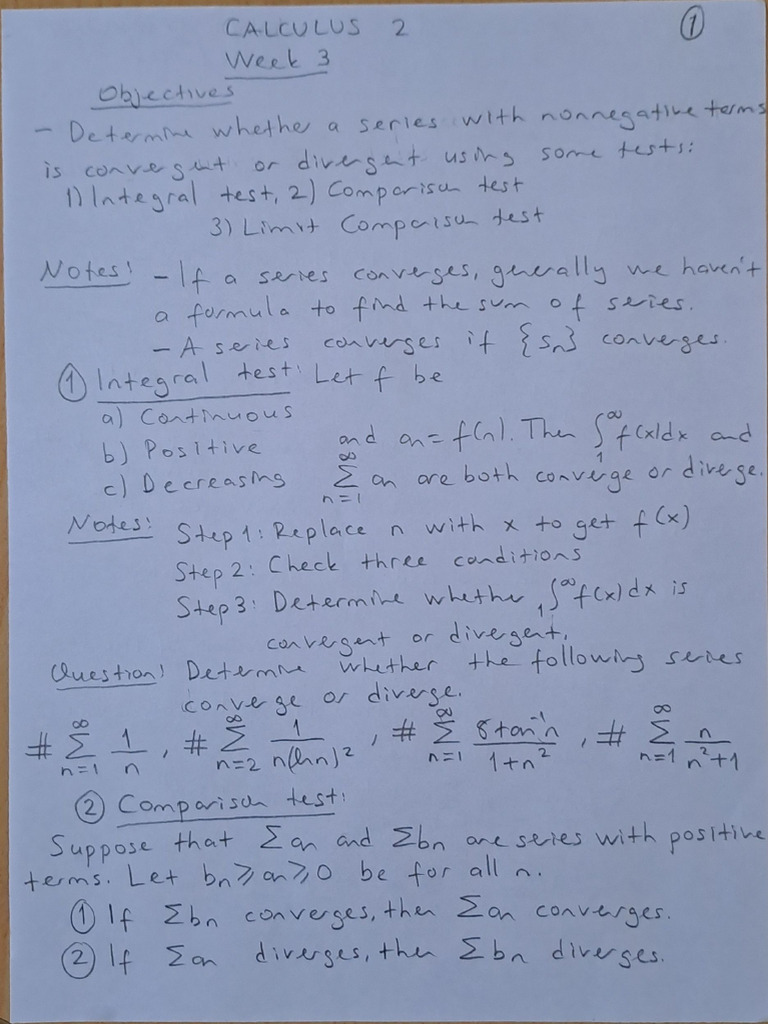 CALCULUS 2 ①
Week 3
Objectives
- Determine whether a series with nonnegative terms
is convergent or divergent using some tests:
1) Integral test, 2) Comparison test
3) Limit Comparison test
Notes: - If a series converges, generally we haven't
a formula to find the sum of series.
- A series converges if {sn} converges.
① Integral test: Let f be
a) Continuous
b) Positive and an = f(n). Then ∫₁^∞ f(x)dx and
c) Decreasing ∑_{n=1}^∞ an are both converge or diverge.
Notes: Step 1: Replace n with x to get f(x)
Step 2: Check three conditions
Step 3: Determine whether ₁∫^∞ f(x)dx is
convergent or divergent.
Question: Determine whether the following series
converge or diverge.
# ∑_{n=1}^∞ 1/n , # ∑_{n=2}^∞ 1/(n(lnn)²) , # ∑_{n=1}^∞ (8tan⁻¹n)/(1+n²) , # ∑_{n=1}^∞ n/(n²+1)
② Comparison test:
Suppose that ∑an and ∑bn are series with positive
terms. Let bn ⩾ an ⩾ 0 be for all n.
① If ∑bn converges, then ∑an converges.
② If ∑an diverges, then ∑bn diverges.